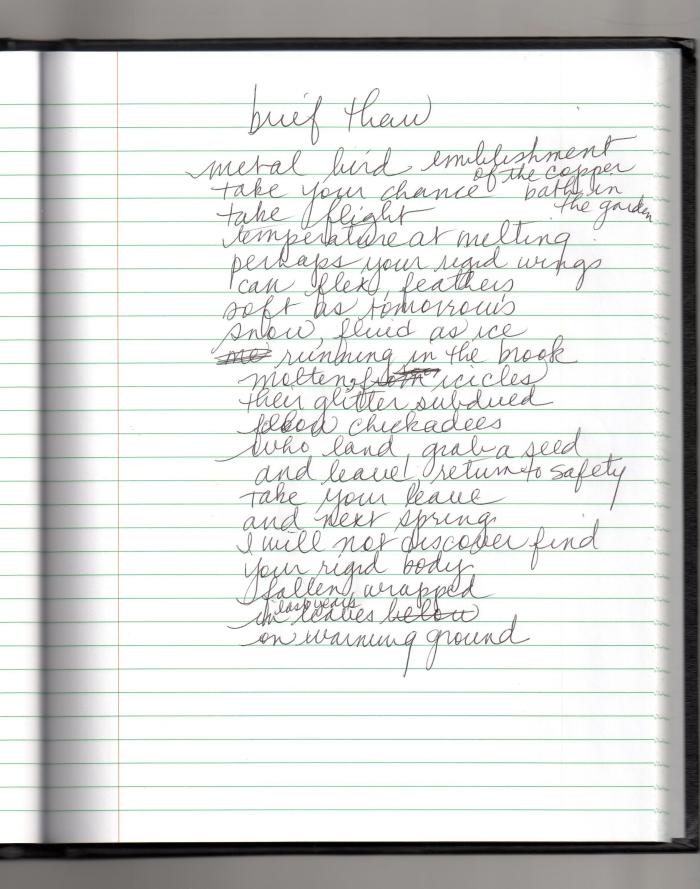 brief thaw
metal bird emblishment
of the copper
take your chance bath in
the garden
take flight
temperature at melting
perhaps your rigid wings
can flex, feathers
soft as tomorrows
snow, fluid as ice
me running in the brook
molten, from icicles
their glitter subdued
chickadees
who land, grab a seed
and leave, return to safety
take your leave
and next spring
I will not discover find
your rigid body
fallen, wrapped
last years
in leaves below
on warming ground